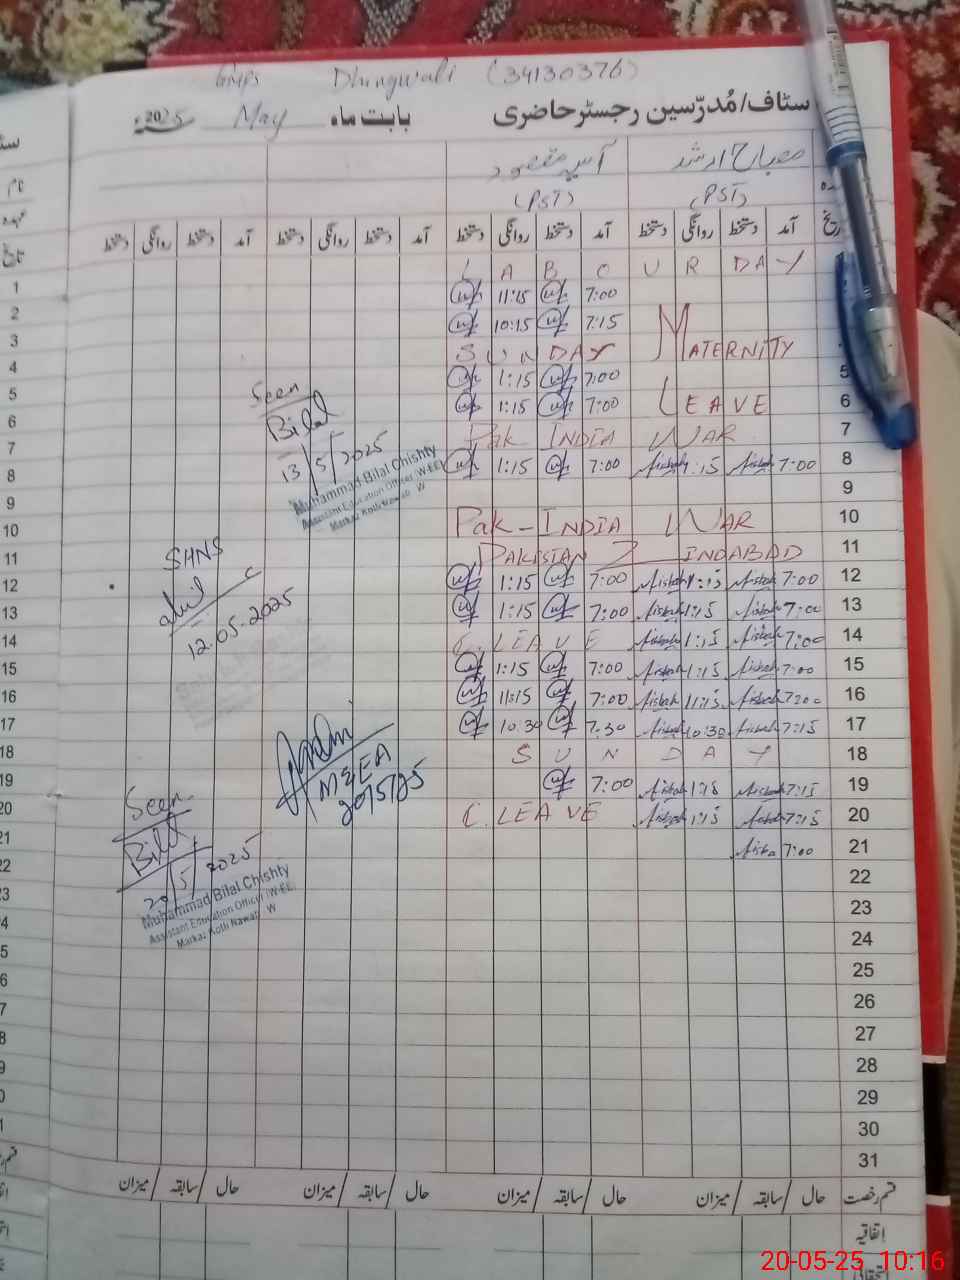 GMPS Dhingwali (34130376)
سٹاف/مُدرّسین رجسٹر حاضری بابت ماہ May 2025ء
مصباح ارشد
(PST) (PST)
تاریخ آمد دستخط روانگی دستخط آمد دستخط روانگی دستخط آمد دستخط روانگی دستخط آمد دستخط روانگی دستخط
LABOUR DAY
1 11:15 7:00
2 10:15 7:15
3 SUNDAY MATERNITY
4 1:15 7:00
5
6 1:15 7:00 LEAVE
7 Pak INDIA WAR
8 1:15 7:00 Misbah 1:15 Misbah 7:00
9
10 Pak-INDIA WAR
11 PAKISTAN ZINDABAD
12 1:15 7:00 Misbah 1:15 Misbah 7:00
13 1:15 7:00 Misbah 1:15 Misbah 7:00
14 C.LEAVE Misbah 1:15 Misbah 7:00
15 1:15 7:00 Misbah 1:15 Misbah 7:00
16 11:15 7:00 Misbah 11:15 Misbah 7:00
17 10:30 7:30 Misbah 10:30 Misbah 7:15
18 SUNDAY
19 7:00 Misbah 1:15 Misbah 7:15
20 C.LEAVE Misbah 1:15 Misbah 7:15
21 Misba 7:00
22
23
24
25
26
27
28
29
30
31
Seen
Bilal
13/5/2025
Muhammad Bilal Chishty
Assistant Education Officer (W-EE)
Markaz Kotli Nawab W
SHNS
12.05.2025
M&EA
20/5/25
Seen
Bilal
20/5/2025
Muhammad Bilal Chishty
Assistant Education Officer (W-EE)
Markaz Kotli Nawab W
قسم رخصت حال سابقہ میزان حال سابقہ میزان حال سابقہ میزان حال سابقہ میزان
اتفاقیہ
20-05-25 10:16